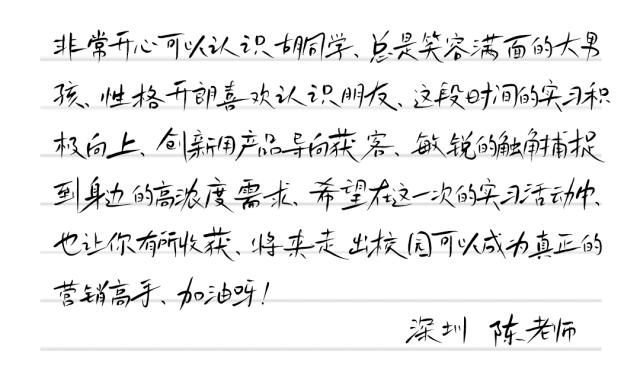 非常开心可以认识胡同学、总是笑容满面的大男
孩、性格开朗喜欢认识朋友、这段时间的实习积
极向上、创新用产品导向获客、敏锐的触角捕捉
到身边的高浓度需求、希望在这一次的实习活动中、
也让你有所收获、将来走出校园可以成为真正的
营销高手、加油呀!
深圳 陈老师